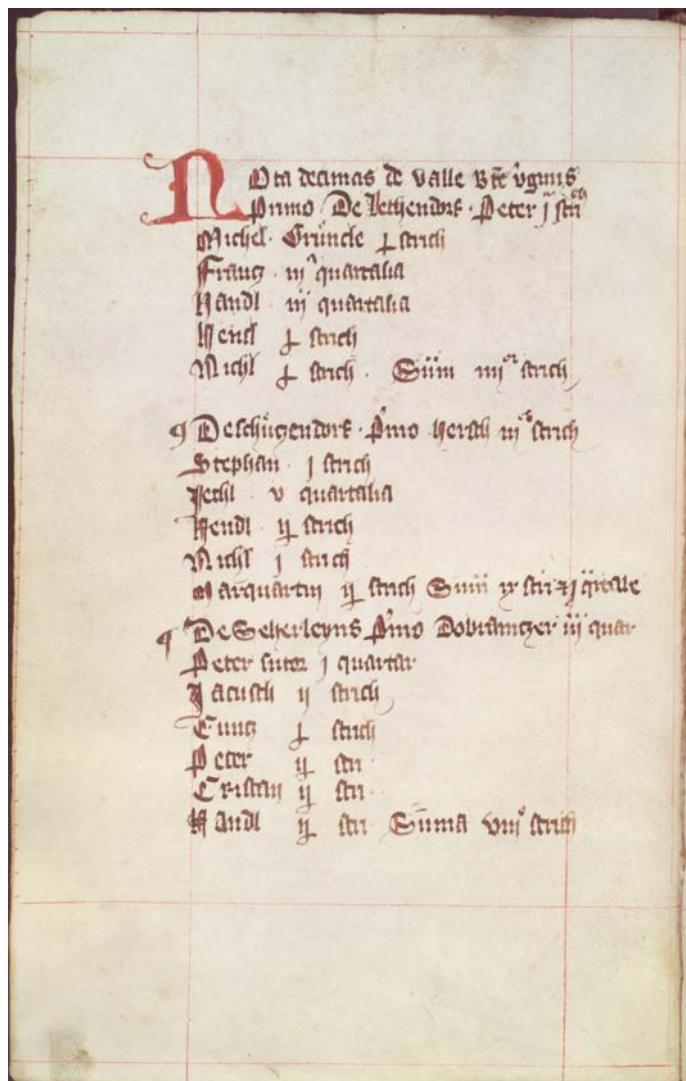 Nota decimas de valle bt̄e v̓gīnis
Primo · De Lethendorf · Peter j stri
Michel · Gruncle strich
Frantz · iij quartalia
Handl iij quartalia
Hensl strich
Nichl strich · Sūm iiij strich
De schutzendorf · P̓mo Hersch iij strich
Stephan · j strich
Jechl · v quartalia
Hendl ij strich
Nichl j strich
Marquartin ij strich Sūm ix stri
De P̓mo Dobramczer iij quar
Peter sutor j quartar
Jacusch ij strich
Cuntz strich
Peter stri
Cristan stri
Handl stri Sūma viij strich